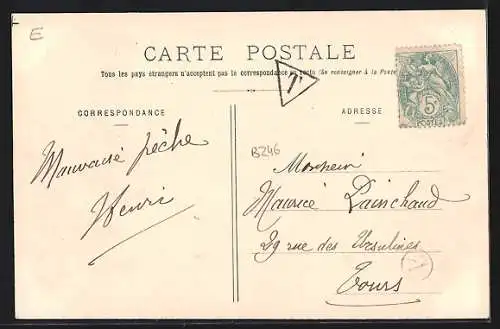 E
CARTE POSTALE
Tous les pays étrangers n'acceptent pas la correspondance au recto (Se renseigner à la Poste
T
5c
POSTES
CORRESPONDANCE
ADRESSE
B246
Mauvaise pêche
Henri
Monsieur
Maurice Painchaud
29 rue des Ursulines
Tours